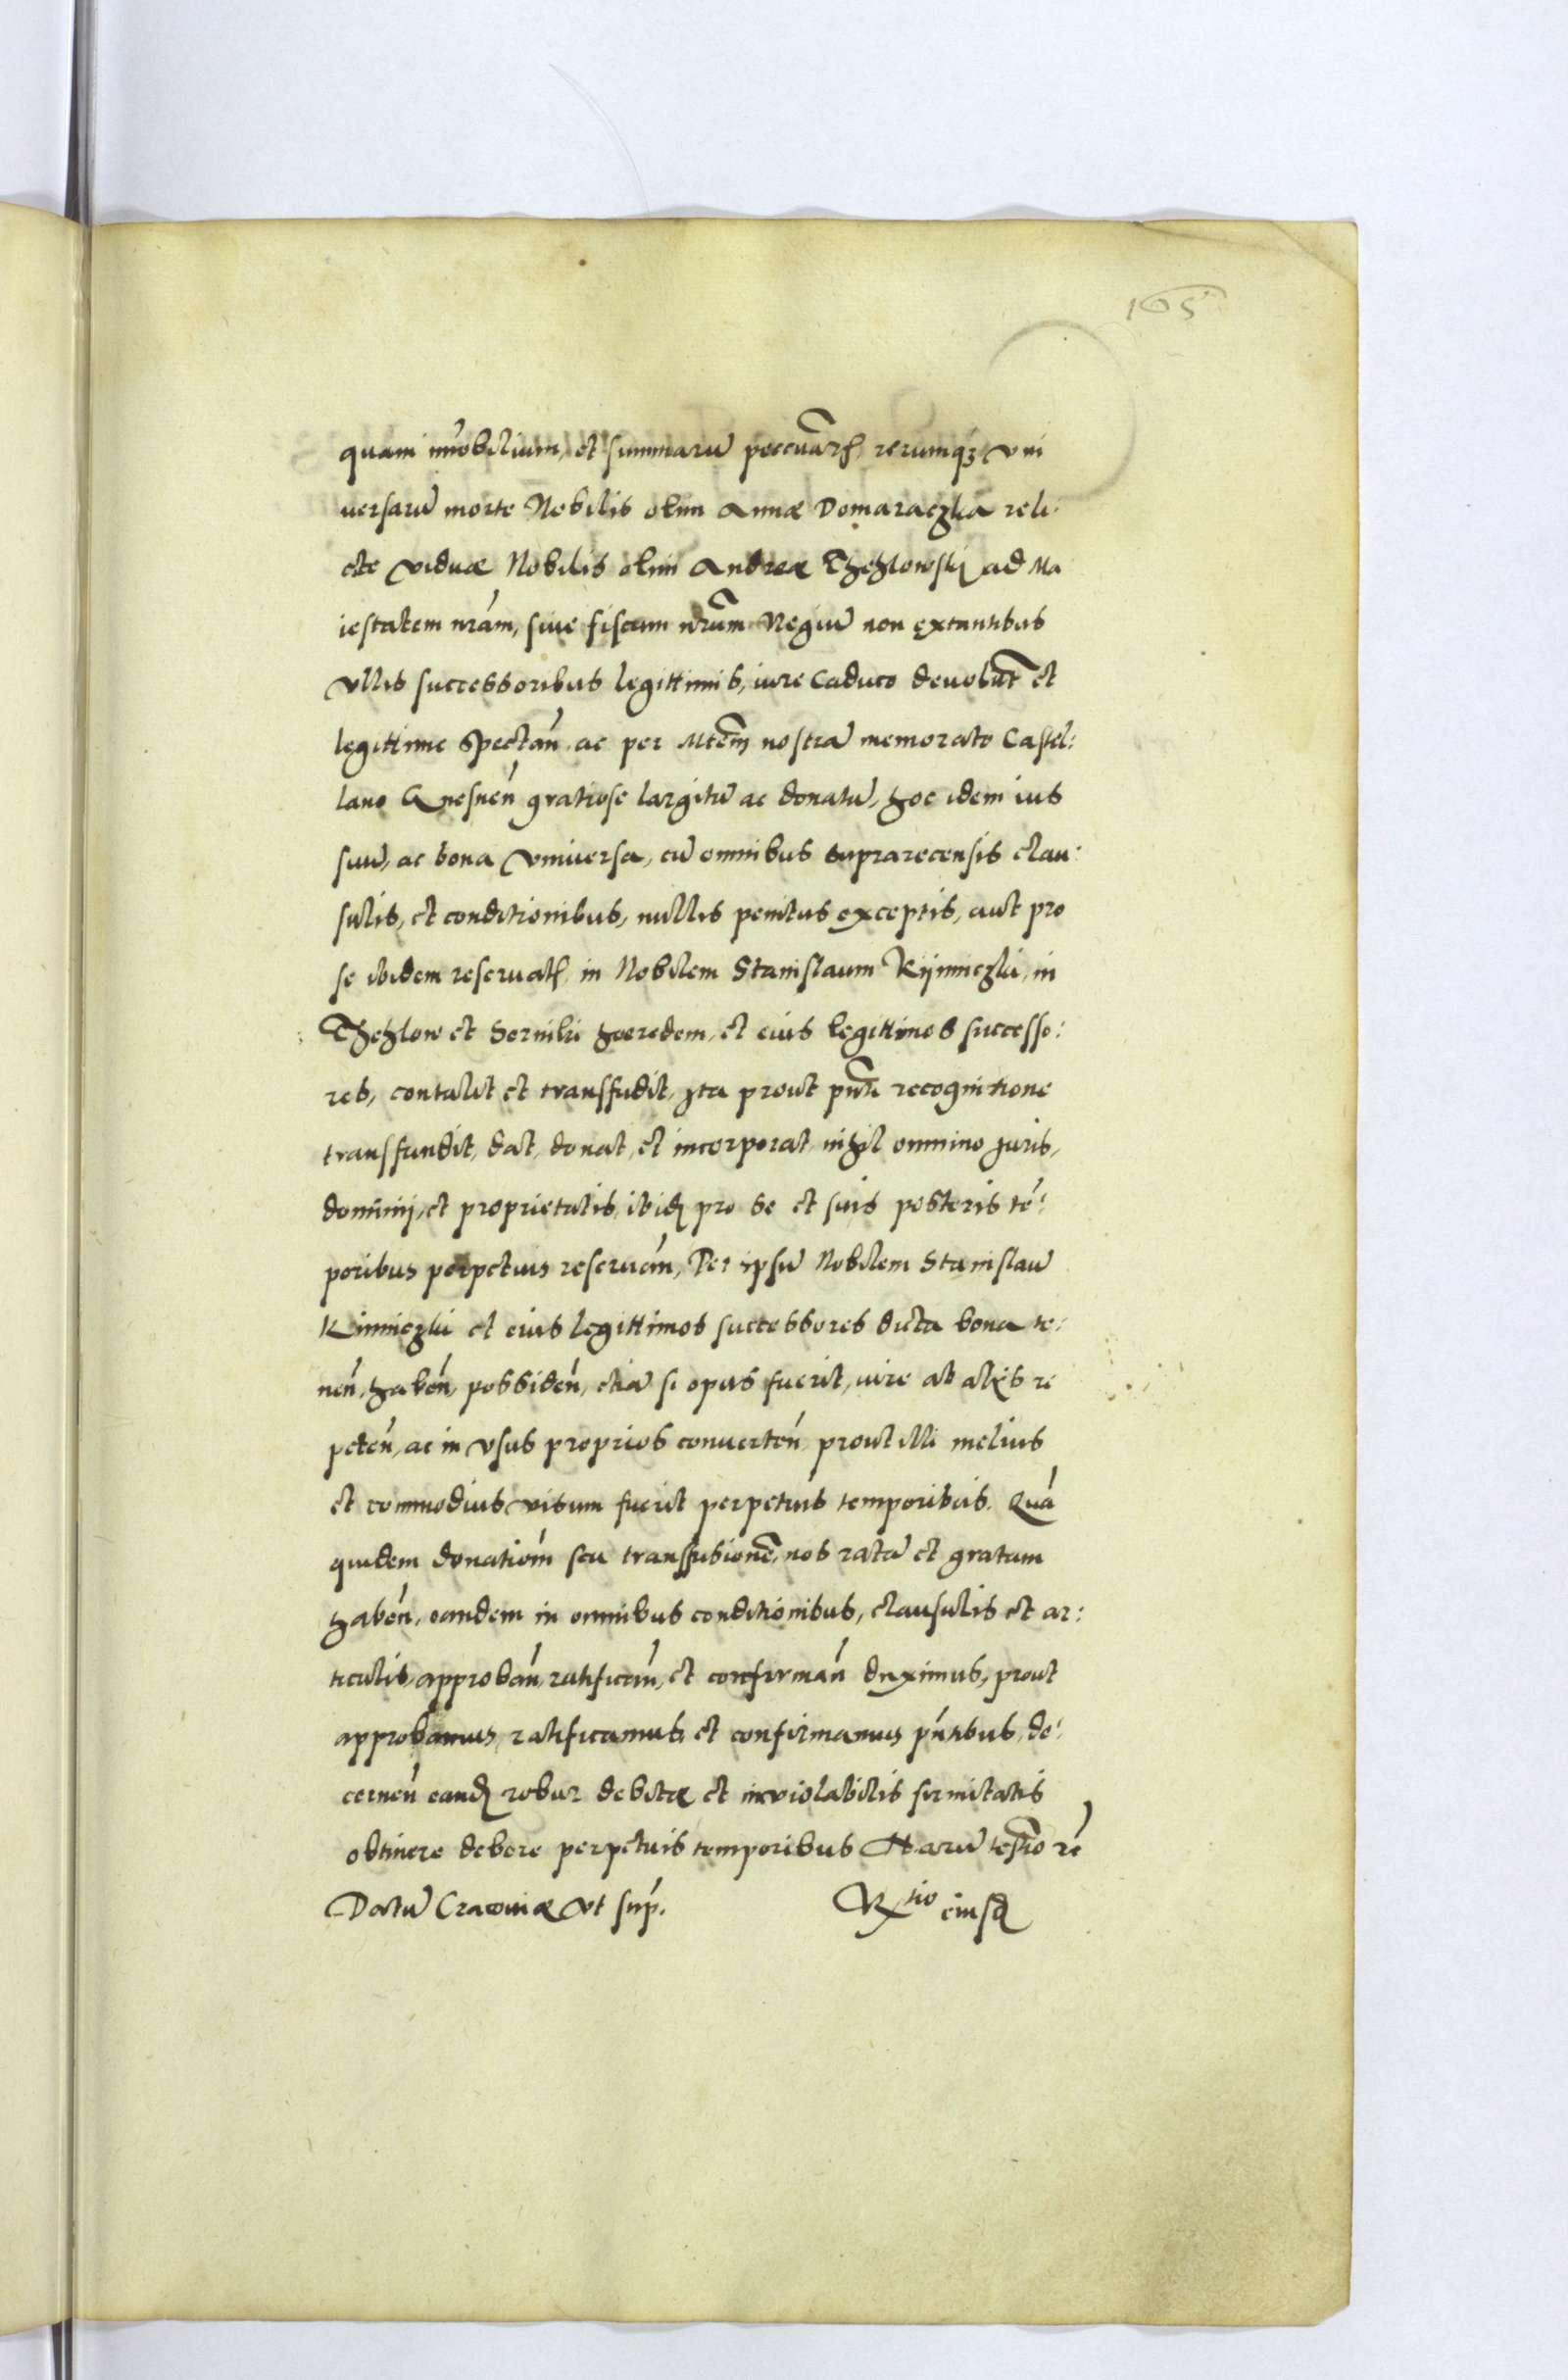 165
quam im̃obilium, et summarũ pecuñarꝭ rerumqꝫ vni
uersarũ morte Nobilis olim Annæ Domaraczka reli
ctæ viduæ Nobilis olim Andreæ Thczlowskj ad Ma
iestatem nr̃am, siue fiscum nr̃um Regiũ non extantibus
vllis successoribus legittimis, iure Caduco deuolut̃ et
legittime spectan̄. ac per Mtem̃ nostrã memorato Castel:
lano Gnesneñ gratiose largitũ ac donatũ, hoc idem ius
suũ, ac bona vniuersa, cũ omnibus suprarecensis clau:
sulis, et conditionibus, nullis penitus exceptis, aut pro
se ibidem reseruatꝭ in Nobilem Stanislaum Kijmiczki, in
et hæredem, et eius legittimos successo:
res, contulit et transfudit, Ita prout pñti recognitione
transfundit, dat, donat, et incorporat, nihil omnino Juris,
dominij, et proprietatis, ibid pro se et suis posteris tẽ:
poribus perpetuis reseruañ, Per ipsũ Nobilem Stanislaũ
Kimiczki et eius legittimos successores dicta bona te:
neñ, habeñ, possideñ, etiã si opus fuerit, iure ab alijs re
peteñ, ac in vsus proprios conuerteñ prout illi melius
et commodius visum fuerit perpetuis temporibus. Quã
quidem donatioñm seu transfusionẽ, nos ratã et gratam
habeñ, eandem in omnibus conditionibus, clausulis et ar:
ticulis, approbañ, ratificañ, et confirmañ duximus, prout
approbamus, ratificamus, et confirmamus pñtibus, de:
cerneñ eand robur debitæ et inviolabilis firmitatis
obtinere debere perpetuis temporibus Harũ testĩo rẽ
Datũ Cracouiæ vt sup̃.
Rtio eiusd